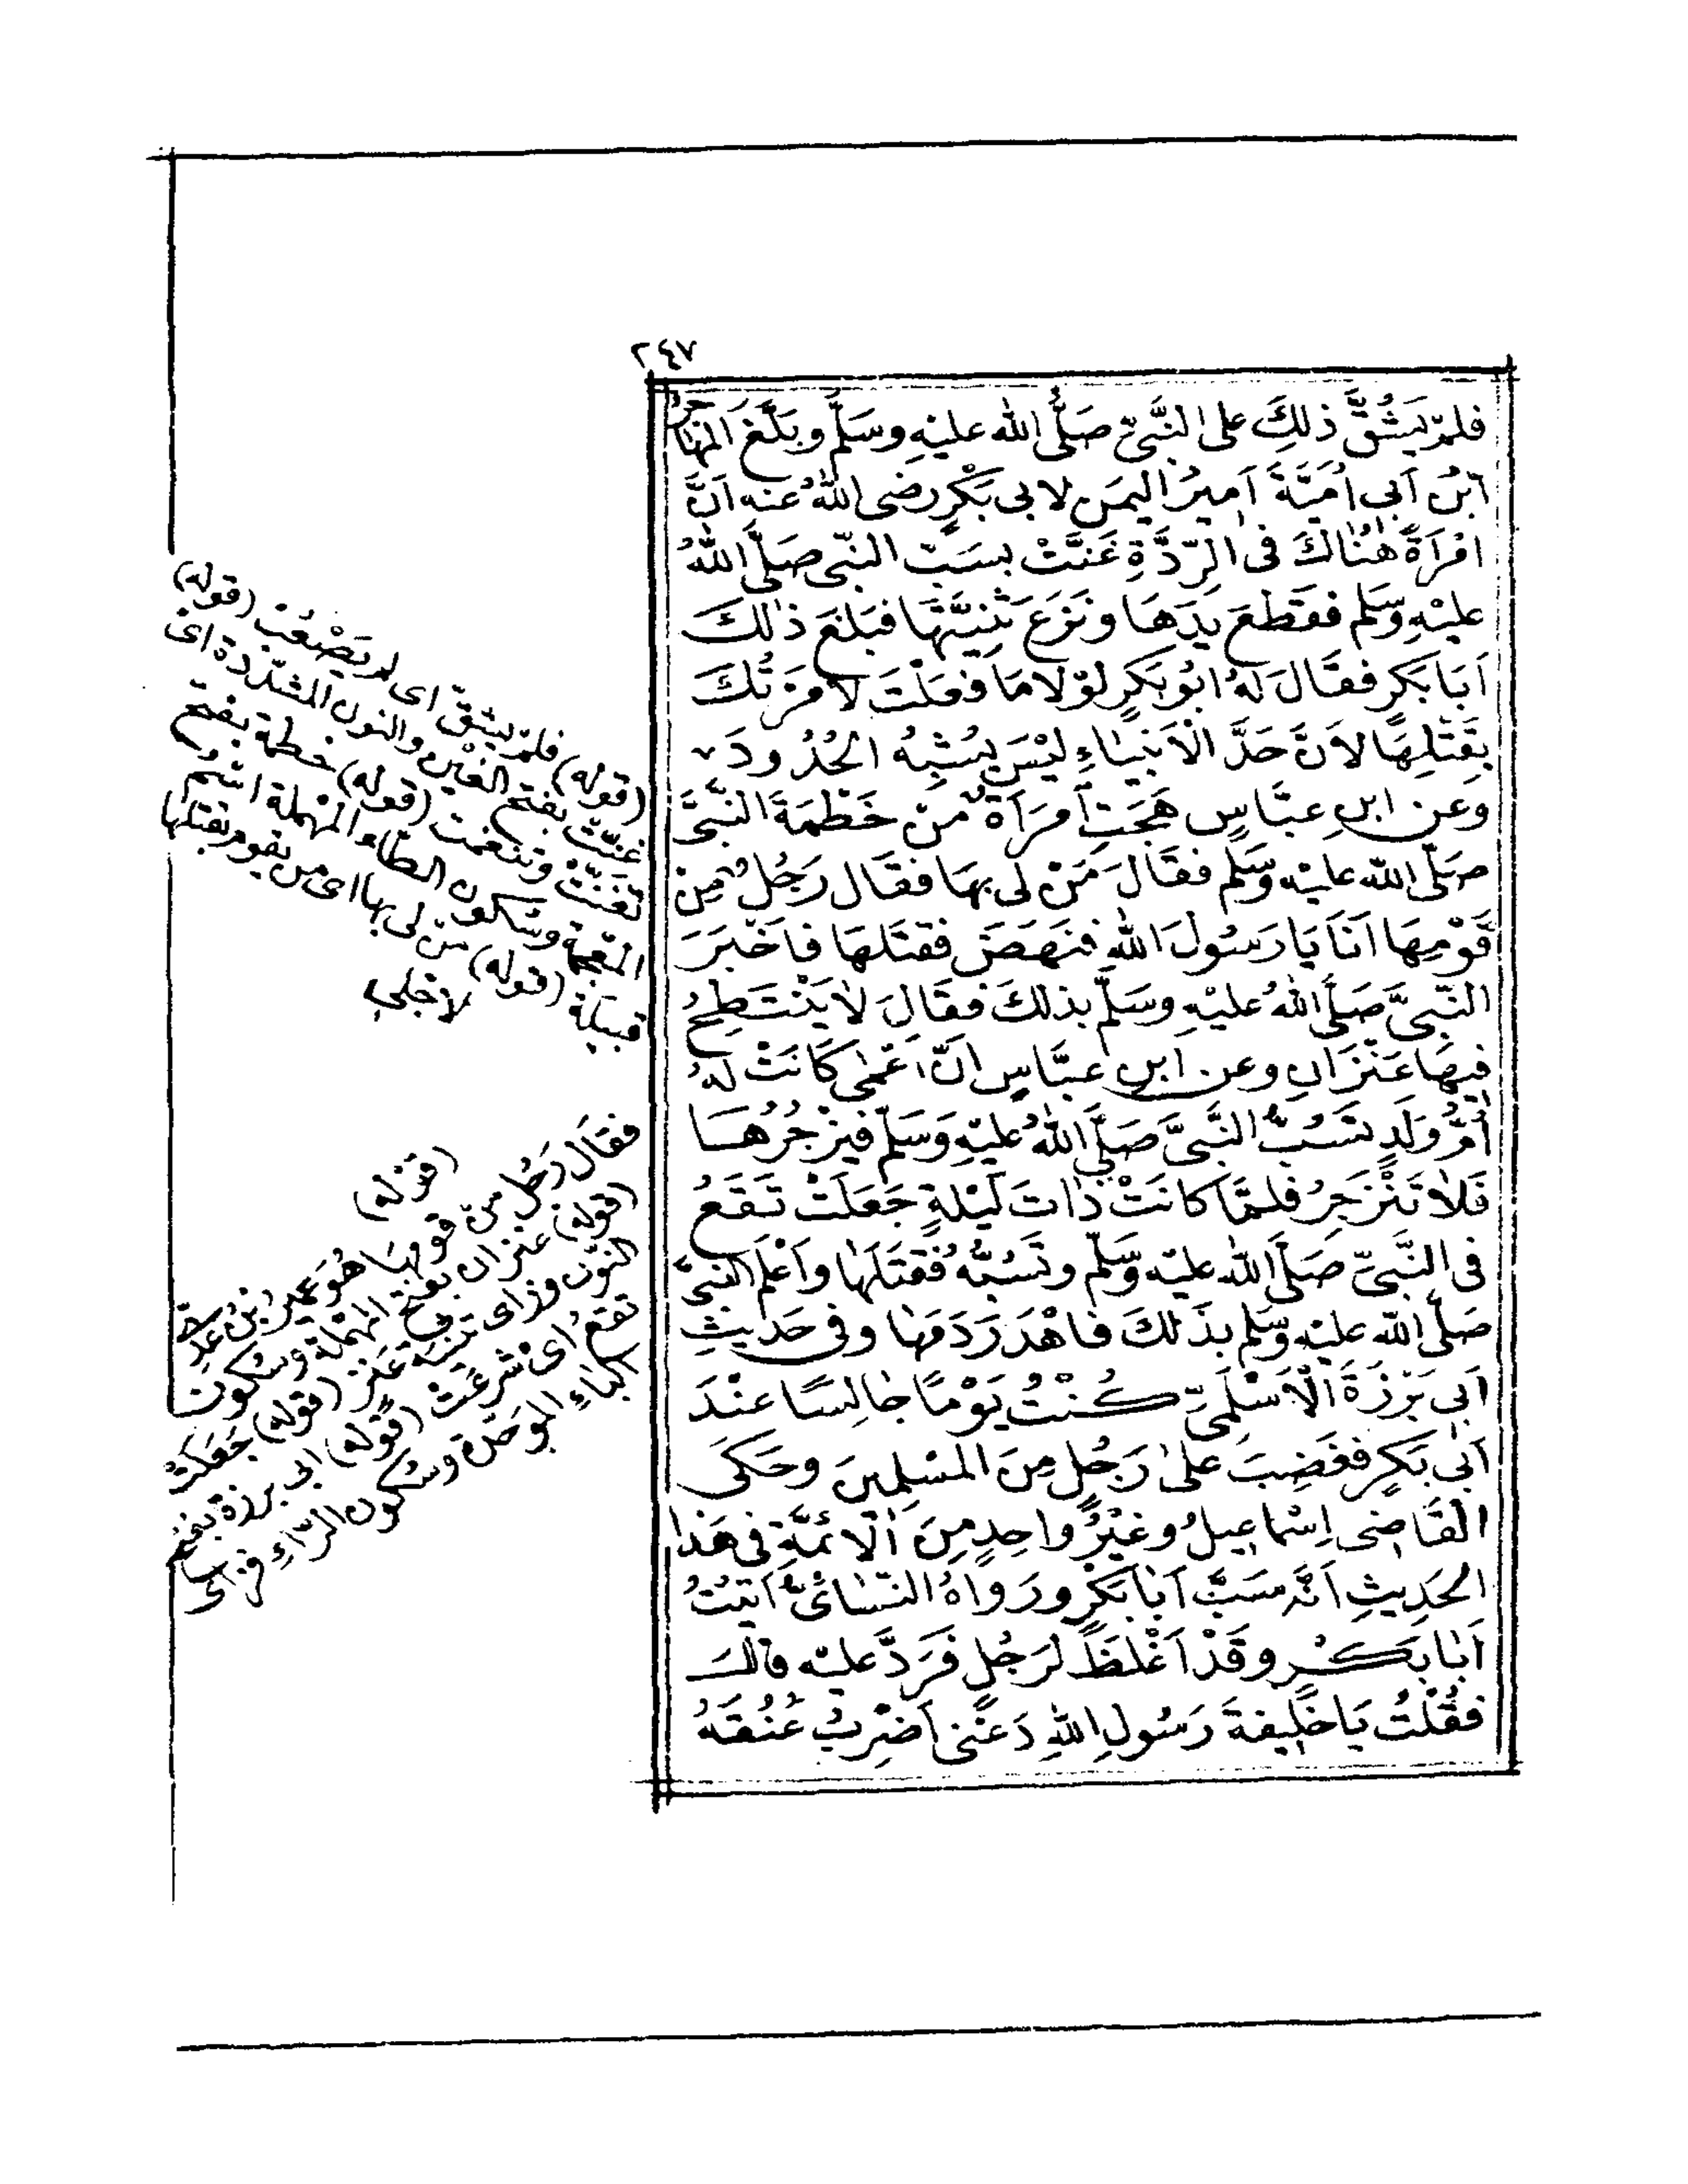 ٢٤٧
فلمْ يَشُقَّ ذلِكَ على النَّبِيِّ صَلَّى الله عليْهِ وسَلَّمَ وبَلَغَ المهٰاجِرَ
ابْنَ اَبى اُمَيَّةَ اَميرُ اليمَنِ لابى بَكْرٍ رضى اللهُ عنه اَنَّ
امْرَاَةً هُنَاكَ فى الرِّدَّةِ غَنَّتْ بسَبِّ النّبى صَلَّى اللهُ
عليْهِ وسَلم فقَطَعَ يَدَهَا ونَزَعَ ثَنِيَّتَهَا فبَلَغَ ذٰلكَ
اَبَا بَكرٍ فقَالَ لهُ ابُو بَكرٍ لوْلَا مَا فعَلْتَ لَاَمَرْتُكَ
بقَتْلِهَا لاَنَّ حَدَّ الْاَنبيٰاءِ لَيْسَ يُشْبِهُ الحُدُودَ
وَعن ابنِ عبَّاسٍ هَجَتِ امْرَاَةٌ مِنْ خَطْمَةَ النَّبِىَّ
صَلَّى الله عليْه وسَلَّم فقَالَ مَنْ لى بهَا فقَال رَجُلٌ مِنْ
قَوْمِهَا اَنَا يَا رَسُولَ الله فنهَضَ فقتَلَهَا فاَخْبَرَ
النّبِىَّ صَلَّى اللهُ عليْهِ وسَلَّمَ بذلكَ فقَالَ لَا يَنْتَطِحُ
فيهَا عَنْزَانِ وعن ابنِ عبَّاسٍ انّ اَعْمٰى كَانَتْ لهُ
اُمُّ وَلَدٍ تَسُبُّ النَّبِىَّ صَلَّى اللهُ عليْهِ وَسَلّم فيَزْجُرُهَا
فَلَا تَنْزَجِرُ فلمَّا كانَتْ ذَاتَ لَيْلةٍ جَعَلَتْ تَقَعُ
فى النَّبِىِّ صَلَّى الله عليْه وسَلّم وتَسُبُّهُ فقَتَلَهَا وَاَعْلَمَ النبىَّ
صَلّى الله عليْه وسَلم بذلكَ فاَهْدَرَ دَمَهٰا وفى حَديثِ
اَبى بَرْزَةَ الْاَسْلَمِىِّ كُنْتُ يَوْمًا جَالِسًا عنْدَ
اَبى بَكرٍ فغَضِبَ عَلى رَجُلٍ مِنَ المسْلِمينَ وحَكَى
القَاضى اِسْمَاعيلُ وغيْرُ واحِدٍ مِنَ الْاَئمَّةِ فى هٰذا
الحَدِيثِ اَنَّهُ سَبَّ اَبَا بَكْرٍ ورَوَاهُ النّسَائىُّ اَتيْتُ
اَبَا بَكرٍ وقَدْ اَغْلَظَ لرَجُلٍ فَرَدَّ عليْه قالَ
فقُلْتُ يَا خَليفةَ رَسُولِ اللهِ دَعْنى اَضْرِبُ عُنُقَهُ
(قوله) فلمْ يشقّ اى لم يَصْعُبْ (قوله)
غنّتْ بفتح الغيْن والنون المشدّدة اى
تغَنّتْ وتنغمت (قوله) خطمة بفتح
المعجمة وسُكون الطّاء المهْملة اسْمُ
قبيلة (قوله) منْ لى بها اى من يقوم بقتلها
لاجْلى
(قوْله)
فقَال رَجُل منْ قومهَا هُوَ عميرُ بْنُ عدى
(قوله) عنزان بفتح المهْملة وسُكون
النّون وزاى تثنية عَنْز (قوله) جَعَلَتْ
تقعُ اى شرعَتْ (قوله) ابى برزة بفتح
الباءِ الموَحّدة وسُكون الرّاءِ فزاى